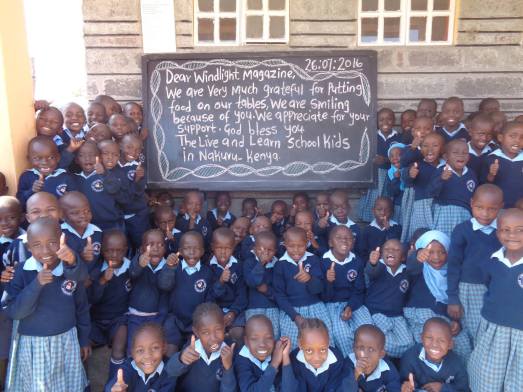 26:07:2016
Dear Windlight Magazine,
We are Very Much grateful for Putting
food on our tables. We are Smiling
because of you. We appreciate for your
support. God bless you
The Live and Learn School Kids
in Nakuru-Kenya.